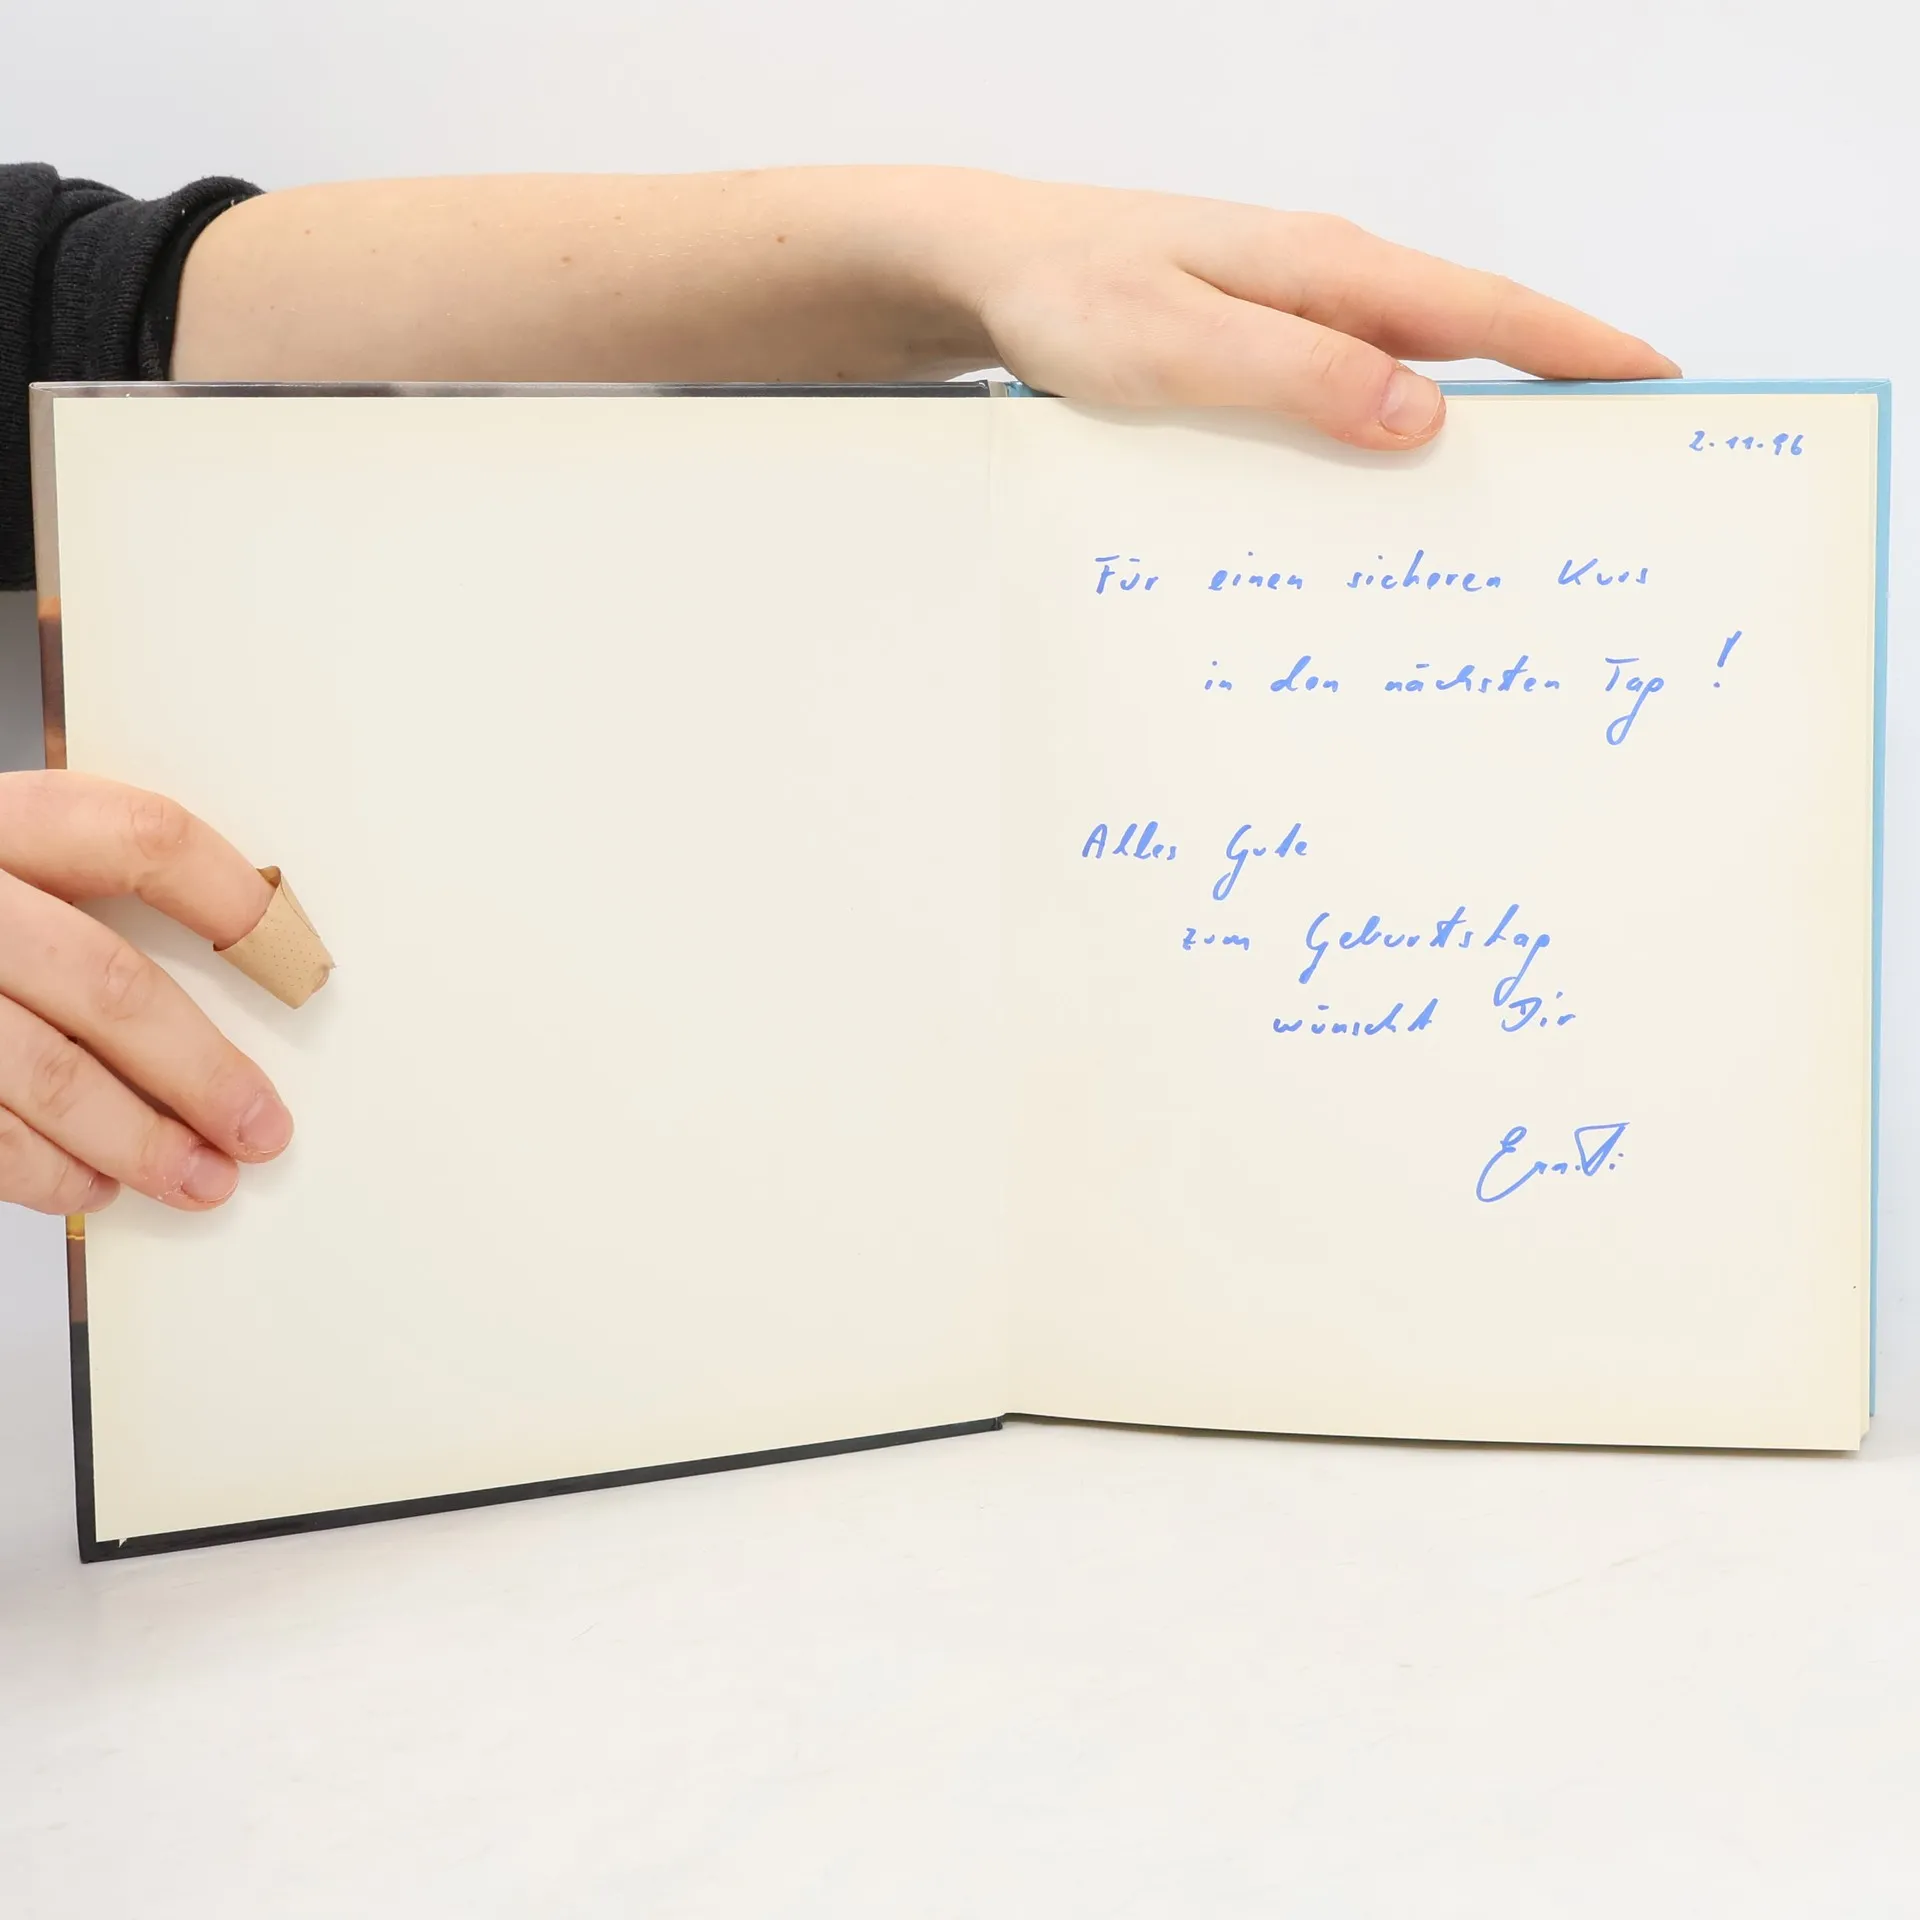 2.11.96
Für einen sicheren Kurs
in den nächsten Tag!
Alles Gute
zum Geburtstag
wünscht Dir